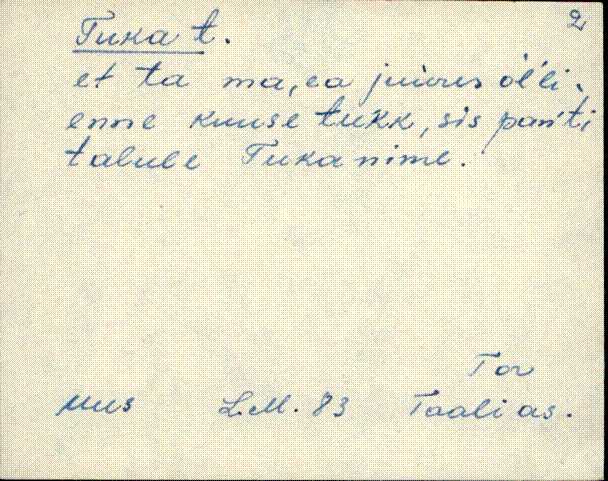 2
Tuka t.
et ta ma,ea juures ol'li
enne kuuse tukk, sis pan'ti
talule Tuka nime.
Tor
Mus L.M. 83 Taali as.